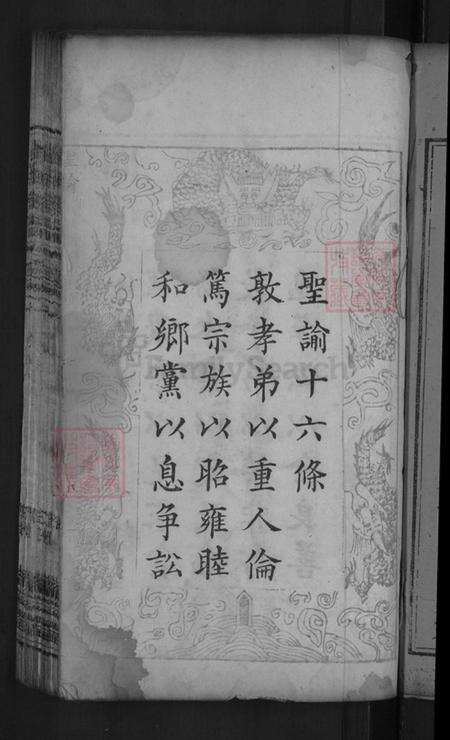 聖諭十六條
敦孝弟以重人倫
篤宗族以昭雍睦
和鄉黨以息争訟